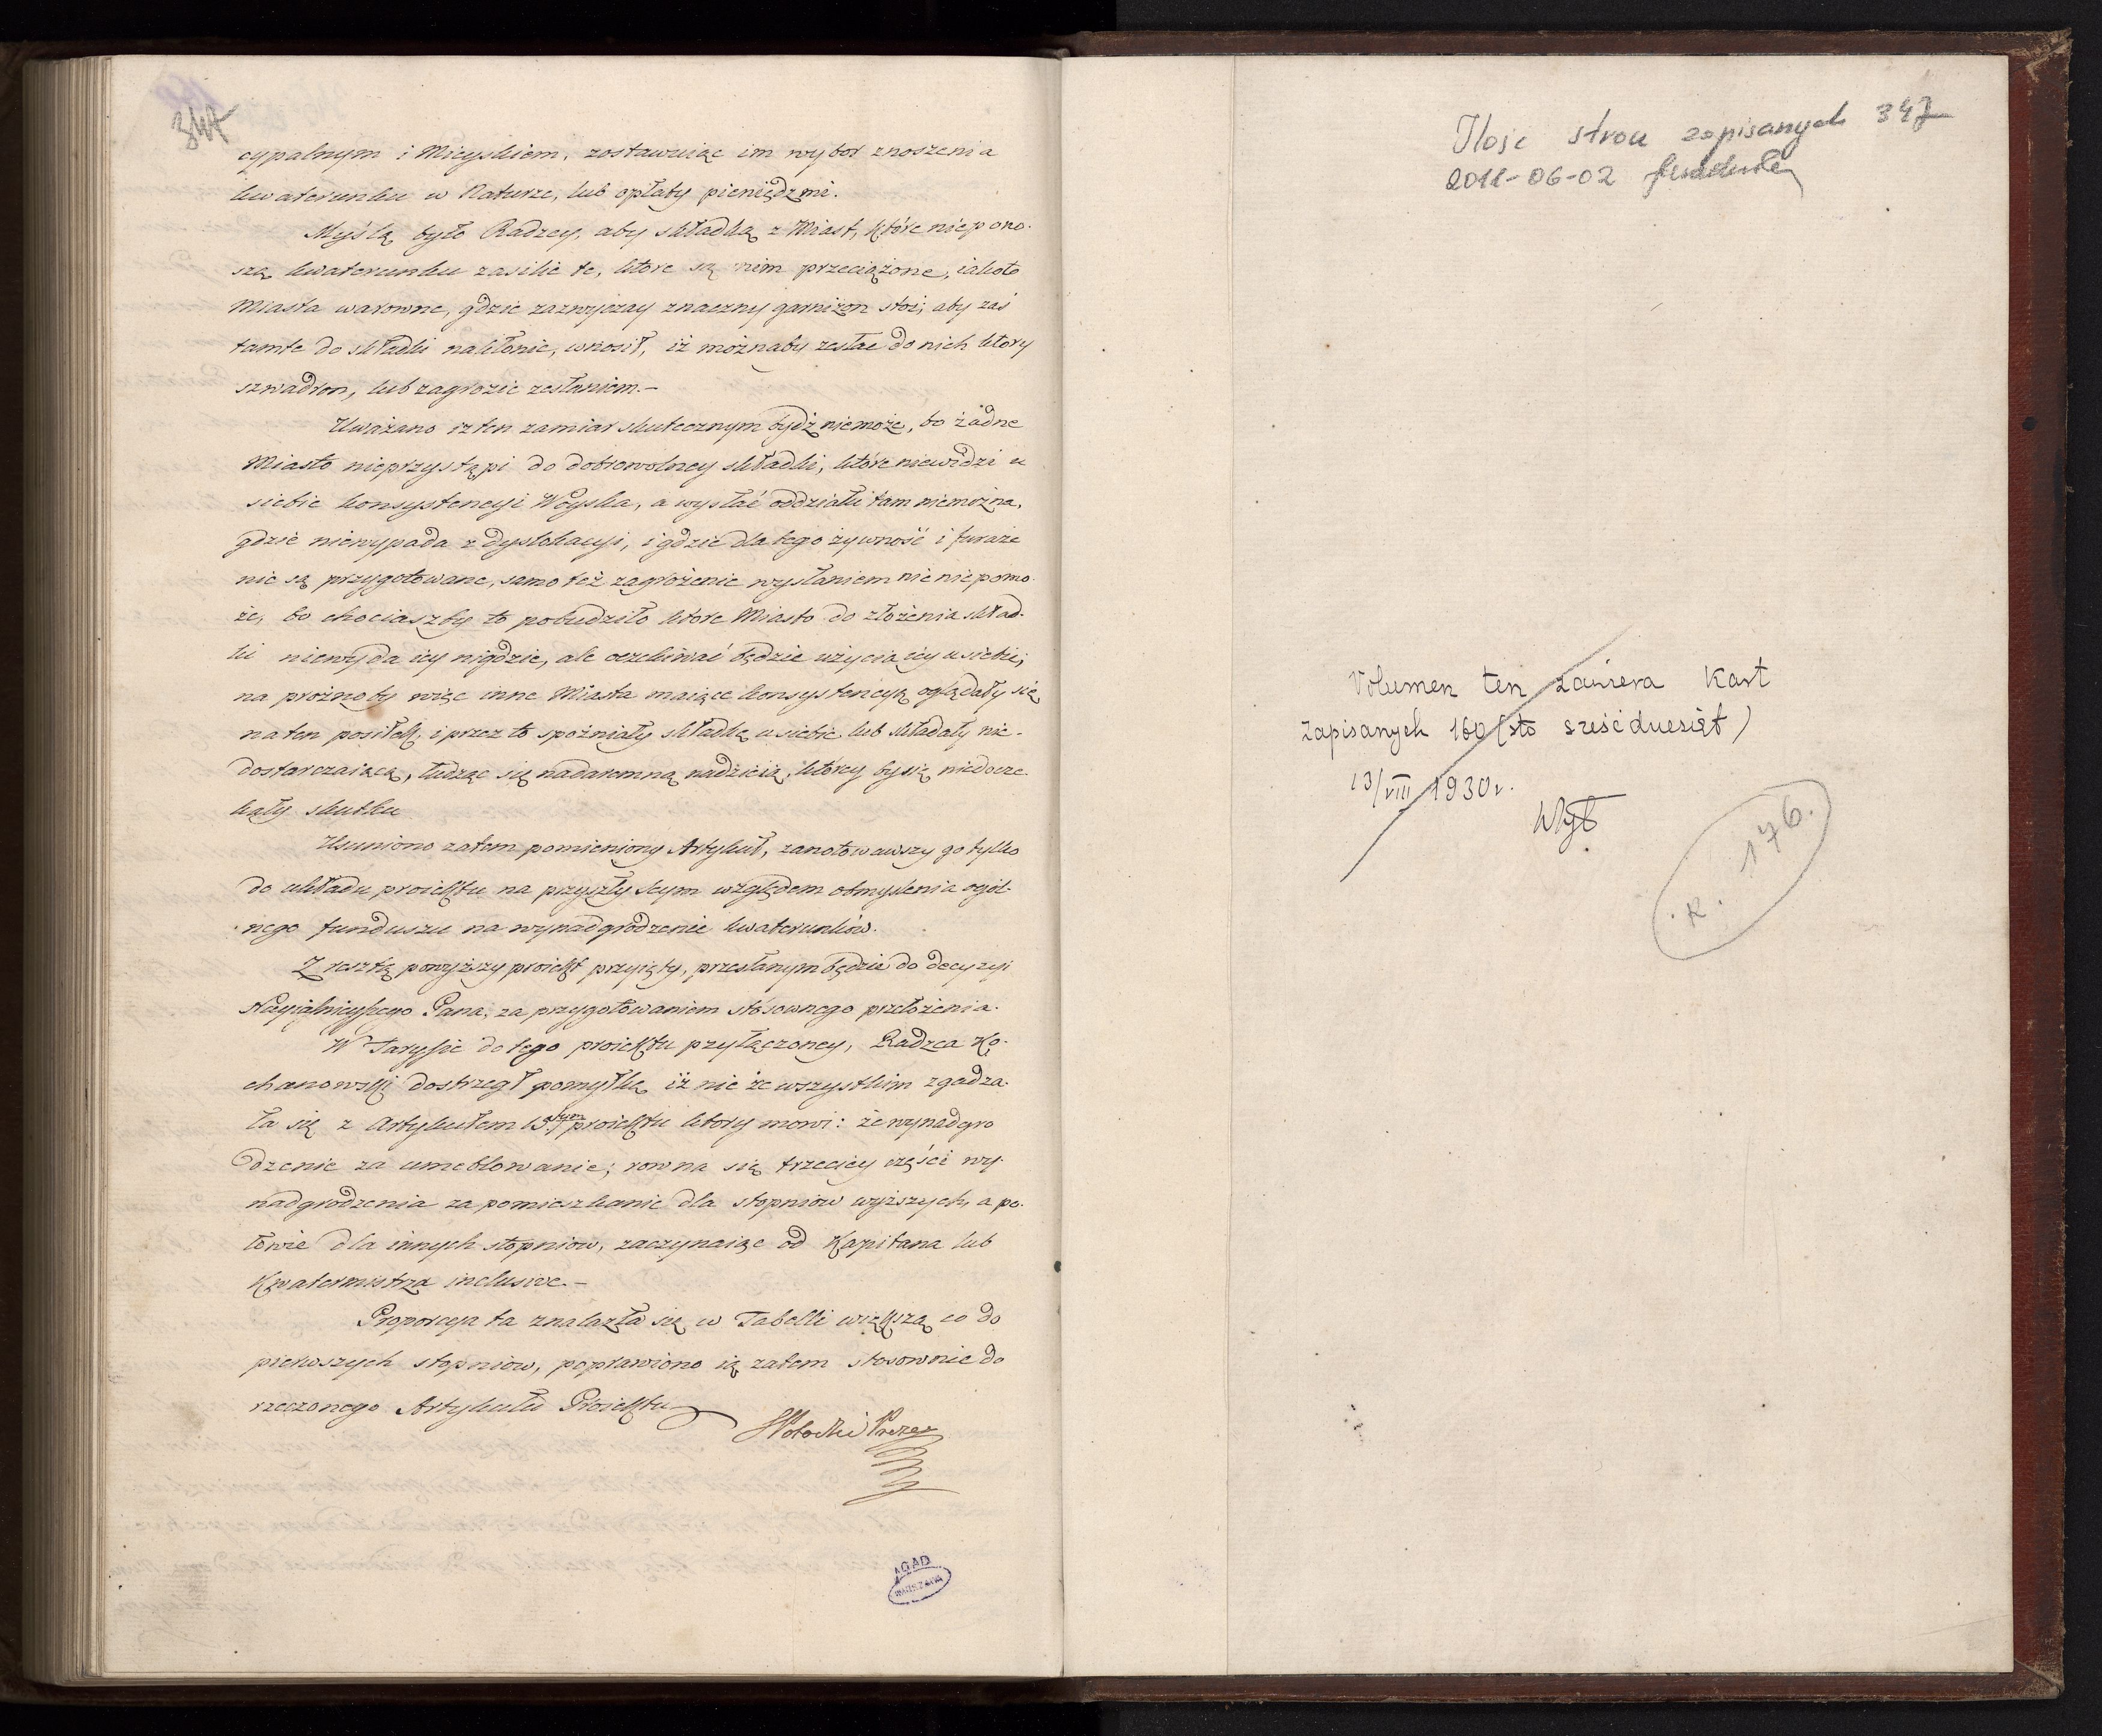 347
cypalnym i Mieyskiem, zostawuiąc im wybor znoszenia
kwaterunku w Naturze, lub opłaty pieniędzmi.
Myślą było Radzcy, aby składką z Miast, które niepono-
szą kwaterunku zasilić te, ktore są nim przeciążone, iakoto
Miasta warowne, gdzie zazwyczay znaczny garnizon stoi; aby zaś
tamte do składki nakłonić, wnosił, iż możnaby zesłać do nich ktory
szwadron, lub zagrozić zesłaniem.—
Uważano iż ten zamiar skutecznym bydź niemoże, bo żadne
Miasto nieprzystąpi do dobrowolney składki, które niewidzi u
siebie konsystencyi Woyska, a wysłać oddziału tam niemożna,
gdzie niewypada z dyslokacyi, i gdzie dla tego żywność i furaże
nie są przygotowane, samo też zagrożenie wysłaniem nic niepomo-
że, bo chociaszby to pobudziło ktore Miasto do złożenia skład-
ki niewyda iey nigdzie, ale oczekiwać będzie użycia iey u siebie;
na prożnoby więc inne Miasta maiące konsystencyą oglądały się
na ten posiłek, i przez to spoźniały składkę u siebie lub składały nie-
dostarczaiącą, łudząc się nadaremną nadzieią, ktorey by się niedocze-
kały skutku
Usuniono zatem pomieniony Artykuł, zanotowawszy go tylko
do układu proiektu na przyszły Seym względem obmyslenia ogol-
nego funduszu na wynadgrodzenie kwaterunków.
Z resztą powyższy proiekt przyięty, przesłanym będzie do decyzyi
Nayiaśnieyszego Pana, za przygotowaniem stósownego przełożenia.
W Taryfie do tego proiektu przyłączoney, Radzca Ko-
chanowski dostrzegł pomyłkę iż nie ze wszystkim zgadza-
ła się z Artykułem 15tym proiektu ktory mowi: że wynadgro
dzenie za umeblowanie; rowna się trzeciey części wy-
nadgrodzenia za pomieszkanie dla stopniow wyższych, a po-
łowie dla innych stopniow, zaczynaiąc od Kapitana lub
Kwatermistrza inclusive.—
Proporcya ta znalazła się w Tabelli większą co do
pierwszych stopniow, poprawiono ią zatem stosownie do
rzeczonego Artykułu Proiektu
Potocki Prezes
AGAD
WARSZAWA
Ilość stron zapisanych 347
2011-06-02
Volumen ten zawiera kart
zapisanych 160 (sto sześćdziesiąt)
13/VIII 1930 r.
k. 176.